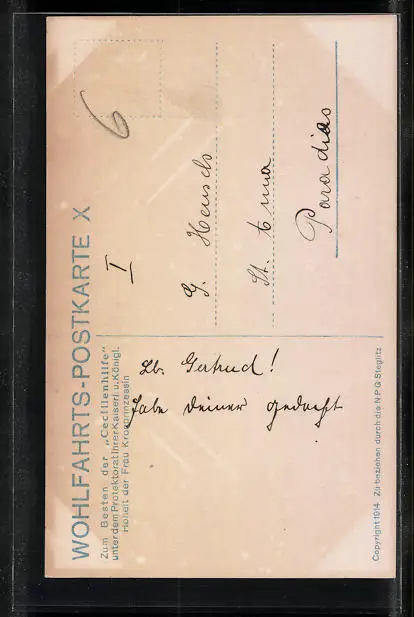 WOHLFAHRTS-POSTKARTE X
Zum Besten der „Cecilienhilfe"
unter dem Protektorat Ihrer Kaiserl. u. Königl.
Hoheit der Frau Kronprinzessin
6
I
Lb. Gertrud!
habe deiner gedacht
G.
St. Anna
Paradies
Copyright 1914 Zu beziehen durch die N P G Steglitz